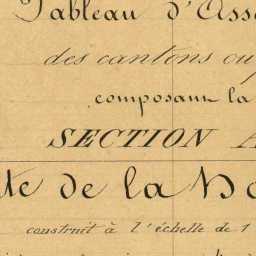 Tableau d'Asse
des cantons ou
composant la
SECTION A
te de la Do
construit à l'échelle de 1